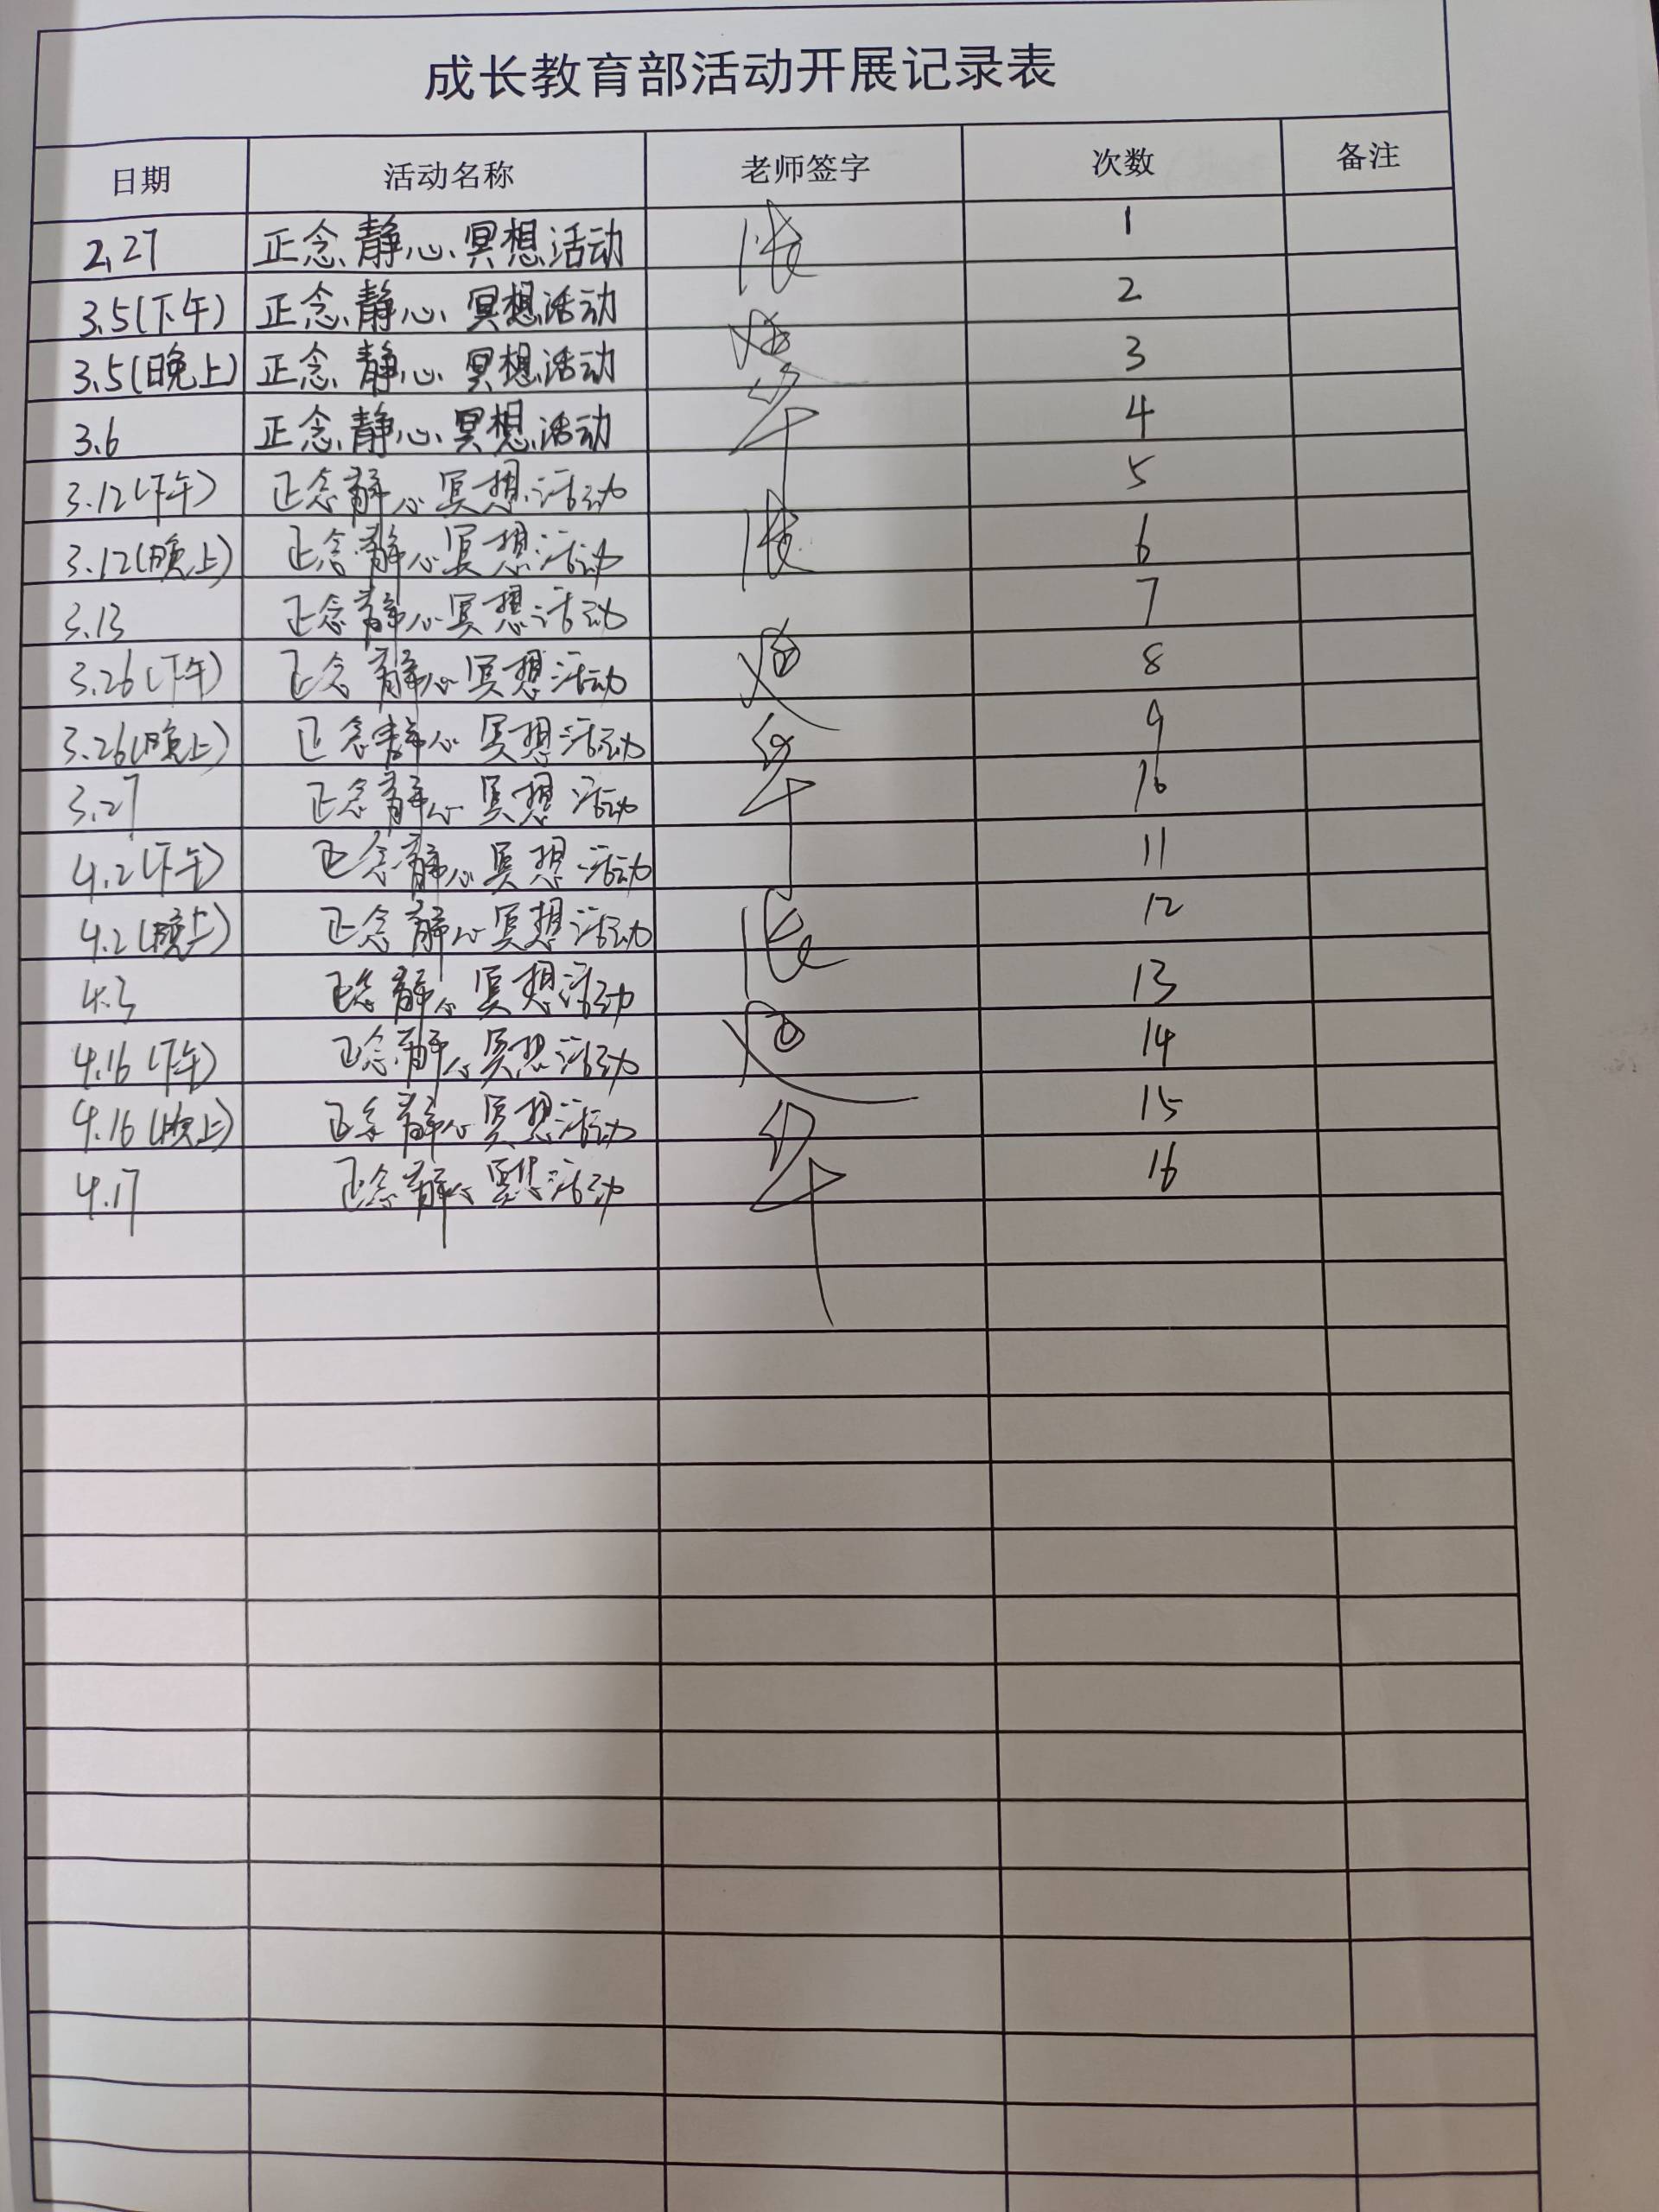 成长教育部活动开展记录表
日期 活动名称 老师签字 次数 备注
2.27 正念、静心、冥想活动 1
3.5(下午) 正念、静心、冥想活动 2
3.5(晚上) 正念、静心、冥想活动 3
3.6 正念、静心、冥想活动 4
3.12(下午) 正念静心冥想活动 5
3.12(晚上) 正念静心冥想活动 6
3.13 正念静心冥想活动 7
3.26(下午) 正念静心冥想活动 8
3.26(晚上) 正念静心冥想活动 9
3.27 正念静心冥想活动 10
4.2(下午) 正念静心冥想活动 11
4.2(晚上) 正念静心冥想活动 12
4.3 正念静心冥想活动 13
4.16(下午) 正念静心冥想活动 14
4.16(晚上) 正念静心冥想活动 15
4.17 正念静心冥想活动 16